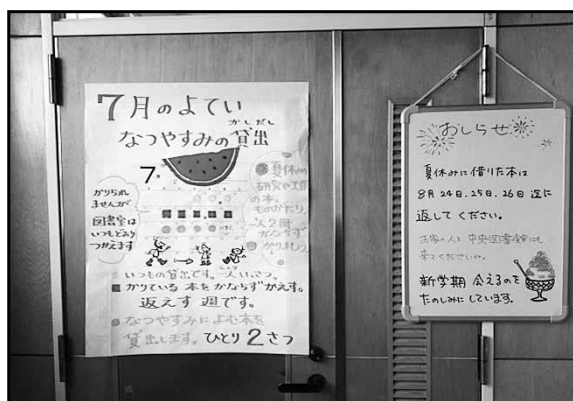 7月のよてい
かしだし
なつやすみの貸出
7
かりられ
ませんが
図書室は
いつもどおり
つかえます
夏休みの
研究や工作
の本、
ものがたり、
いつもの貸出です。一人
かりている本をかならずかえす。
返えす週です。
なつやすみによむ本を
貸出します。ひとり2さつ
おしらせ
夏休みに借りた本は
8月24日、25日、26日迄に
返してください。
お家の人と中央図書館にも
新学期会えるのを
たのしみにしています。